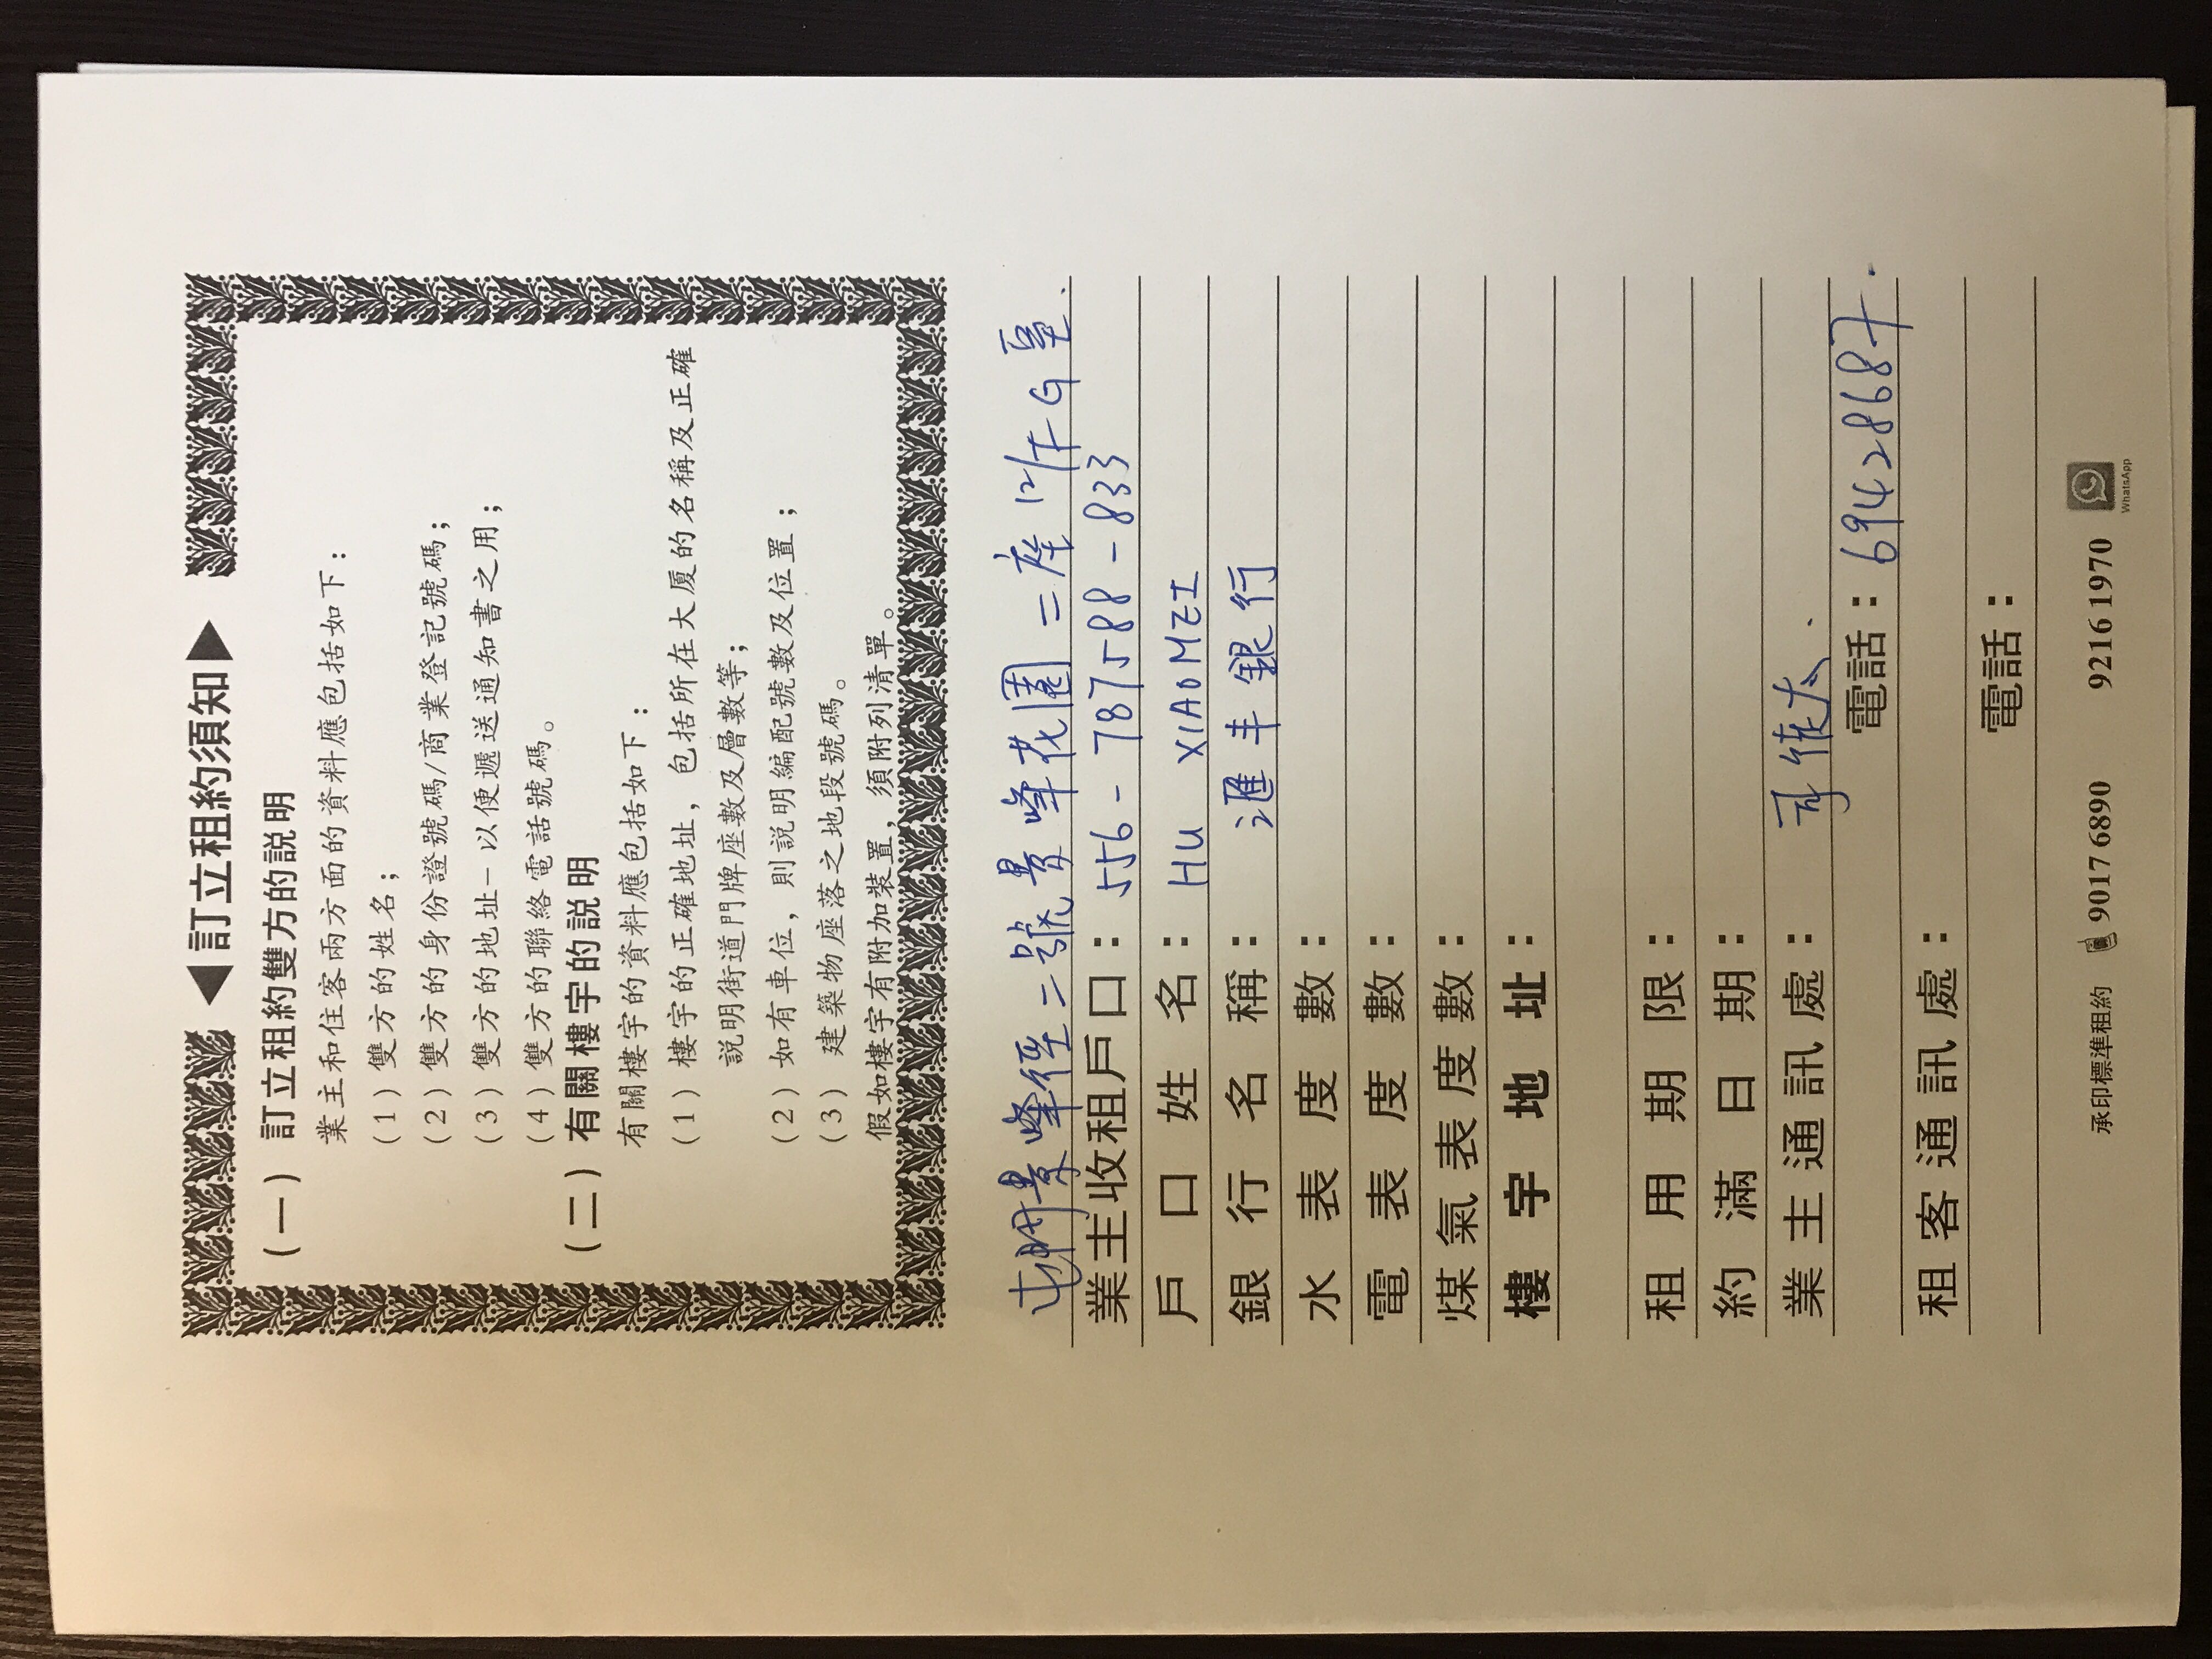 ◀訂立租約須知▶
(一) 訂立租約雙方的説明
業主和住客兩方面的資料應包括如下：
(1) 雙方的姓名；
(2) 雙方的身份證號碼/商業登記號碼；
(3) 雙方的地址－以便遞送通知書之用；
(4) 雙方的聯絡電話號碼。
(二) 有關樓宇的説明
有關樓宇的資料應包括如下：
(1) 樓宇的正確地址，包括所在大厦的名稱及正確
説明街道門牌座數及層數等；
(2) 如有車位，則説明編配號數及位置；
(3) 建築物座落之地段號碼。
假如樓宇有附加裝置，須附列清單。
屯門景峰徑二號景峰花園二座12/F G室.
業主收租戶口：556-787588-833
戶口姓名：HU XIAOMEI
銀行名稱：滙丰銀行
水表度數：
電表度數：
煤氣表度數：
樓宇地址：
租用期限：
約滿日期：
業主通訊處：司徒太.
電話：69428687.
租客通訊處：
電話：
承印標準租約 9017 6890 9216 1970 WhatsApp